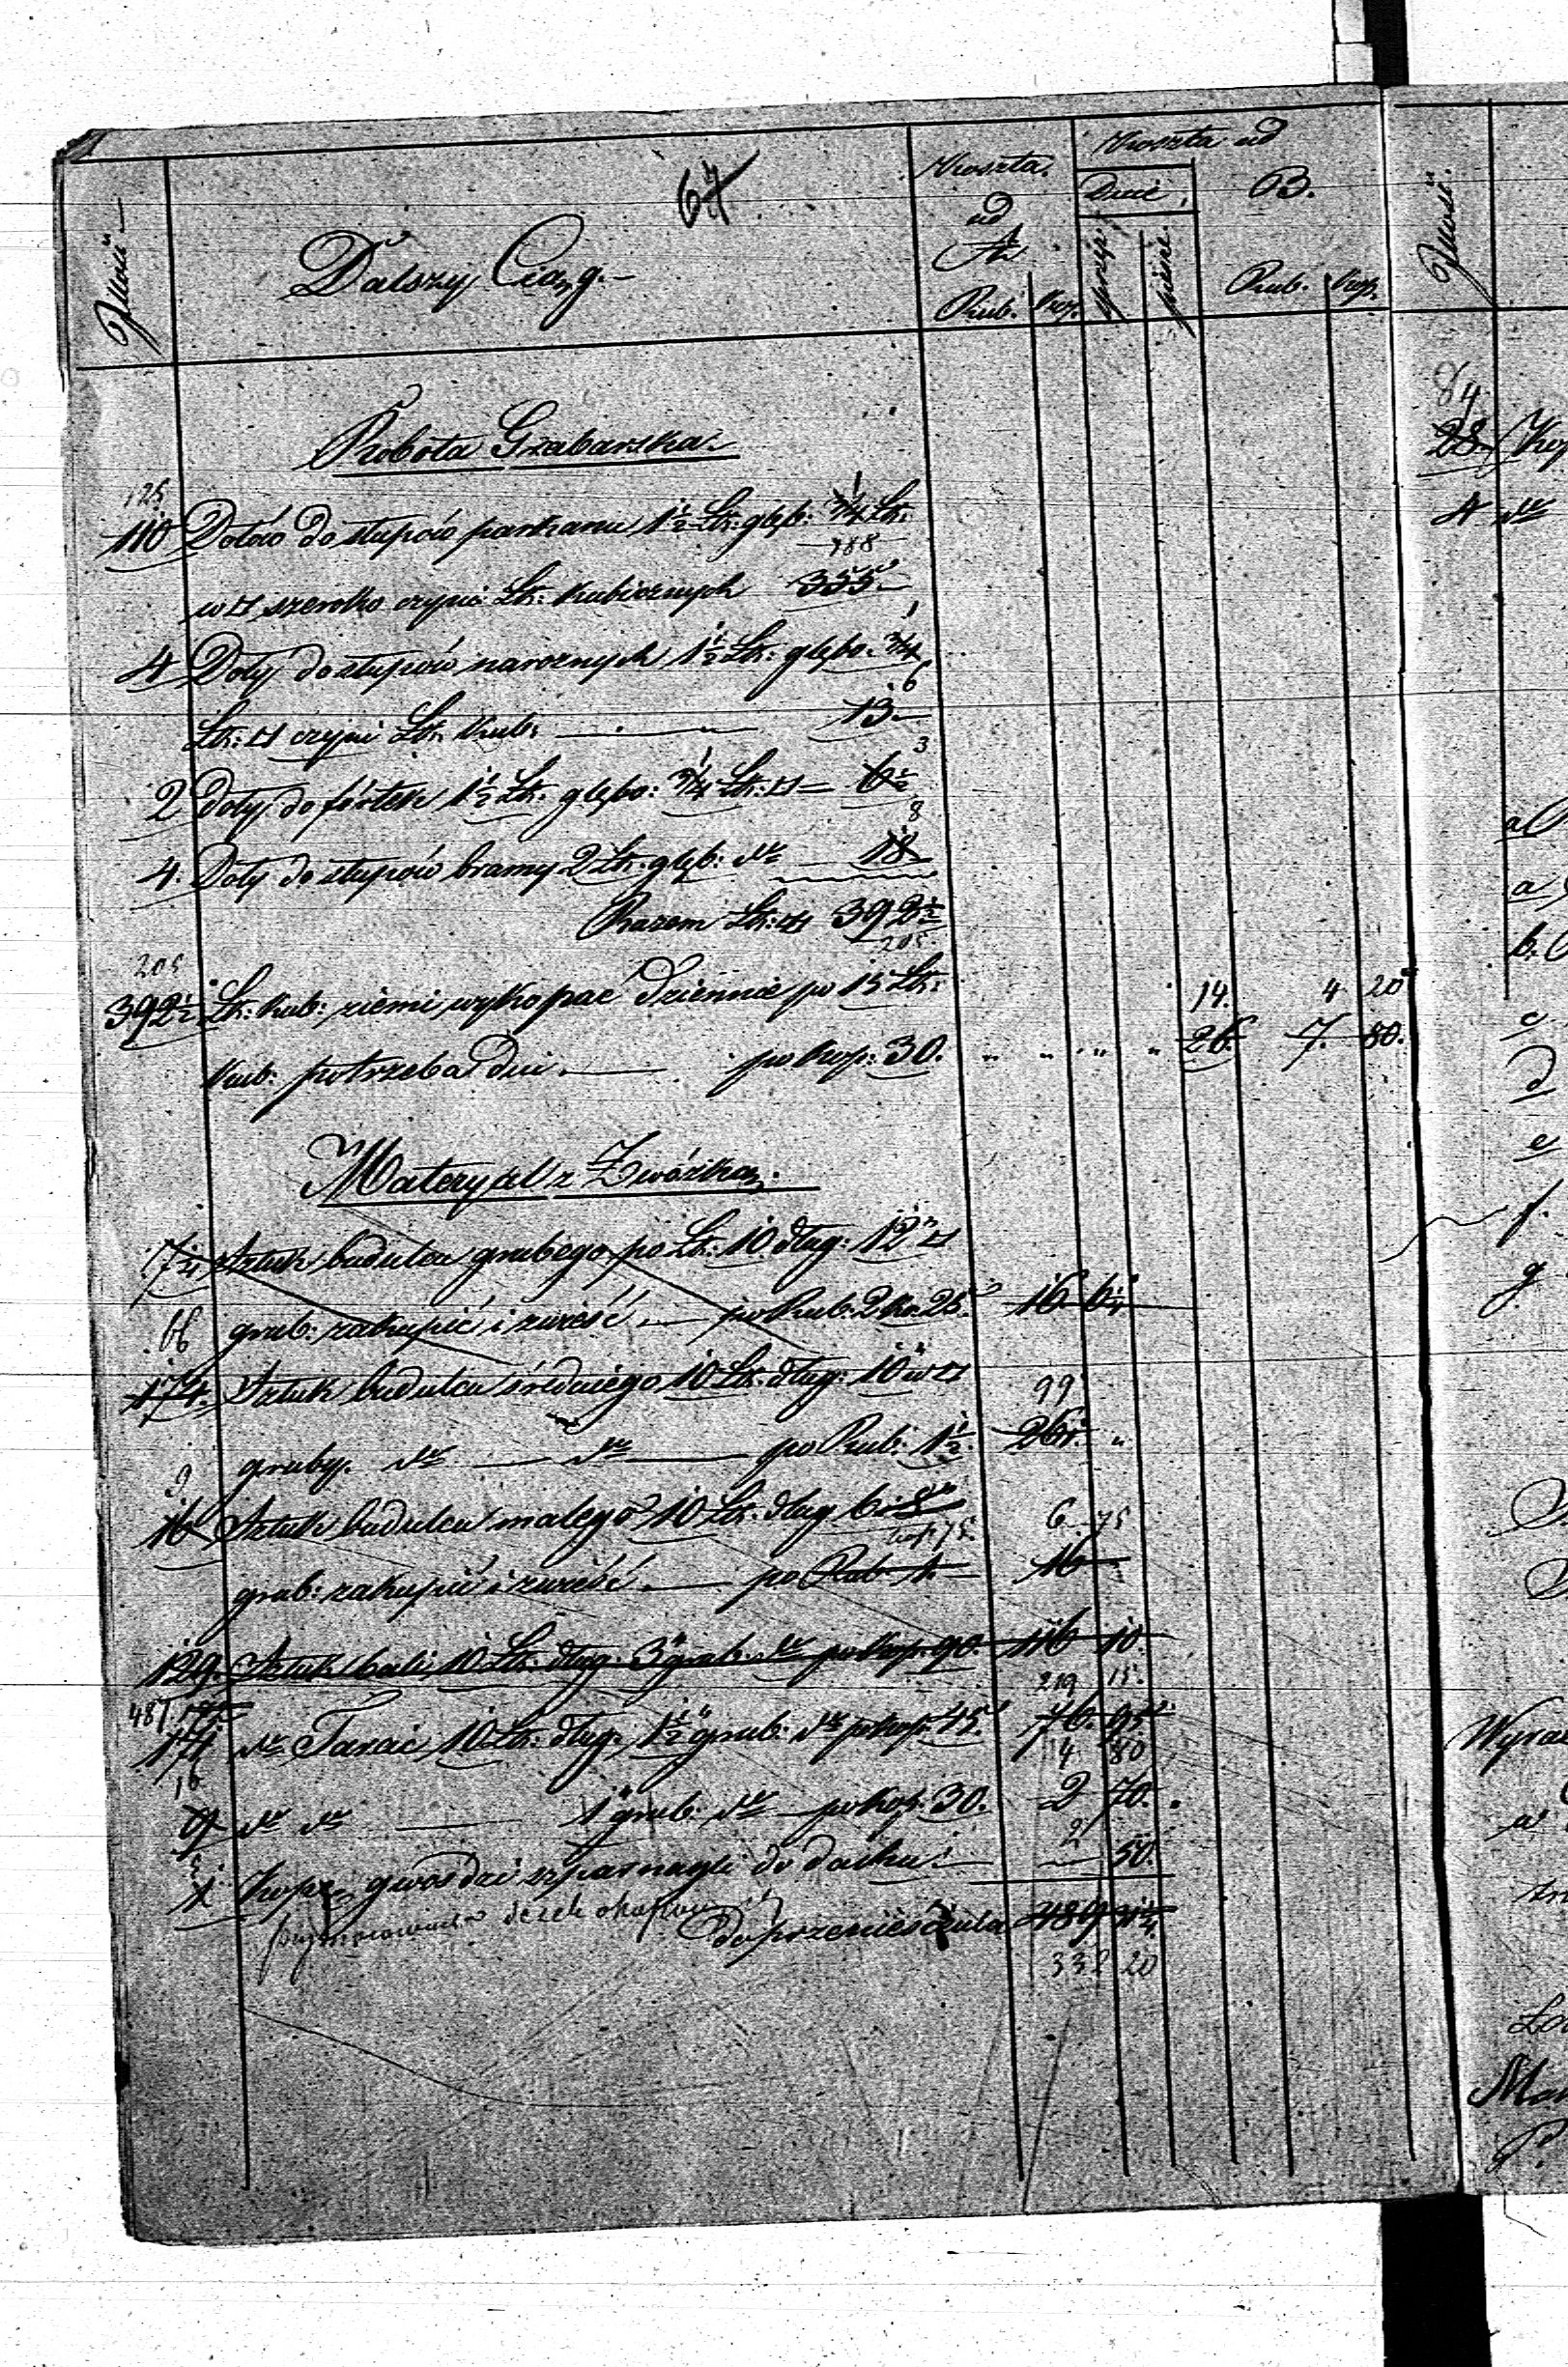 67
Ilość
Dalszy Ciąg.
Koszta
ad
A.
Rub. Kop.
Koszta ad
Dnie
B.
przęż.
piesze.
Rub. Kop.
Ilość.
Robota Grabarska.
125
110 Dołów do słupów parkanu 1½ Łk: głęb: ¾ 1 Łk:
188
w □ szeroko czyni Łk: kubicznych 355
1
4 Doły do słupów narożnych 1½ Łk: głębo: ¾
6
Łk: □ czyni Łk: kub: 13
3
2 doły do fórtek 1½ Łk. głębo: ¾ 1 Łk: □ 6½
8
4. Doły do słupów bramy 2 Łk. głęb: dto 18
Razem Łk: □ 392½
205
205
392½ Łk: kub: ziemi wykopać dziennie po 15 Łk:
14. 4 20
kub: potrzeba dni po kop: 30. " " " " 26. 7. 80.
Materyał z Zwózką.
7¼ Sztuk budulcu grubego po Łk: 10 dług: 12" □
grub: zakupić i zwieść po Rub. 2 ko. 25. 16 6¼
66
174. Sztuk budulcu średniego 10 Łk. dług: 10" w □
99
gruby. dto dto po Rub: 1½. 261. "
9
16 Sztuk budulcu małego 10 Łk. dług 6 i 8"
kop 75. 6 75
grub: zakupić i zwieść po Rub 1. 16
129. Sztuk bali 10 Łk. dług: 3" grub. dto po kop. 90. 116 10
219 15.
487
171 dto Tarcic 10 Łk: dług: 1½" grub: dto po kop. 45. 76. 95
4 80
16
9 dto dto 1" grub: dto po kop. 30. 2 70.
2
1 Kopę gwoździ szparnagli do dachu 50.
do przeniesienia 489 31¼
332 20
84
28 Kop
4 dto
a
a
b.
c
d
e
f.
g
Wyra
a
Ma